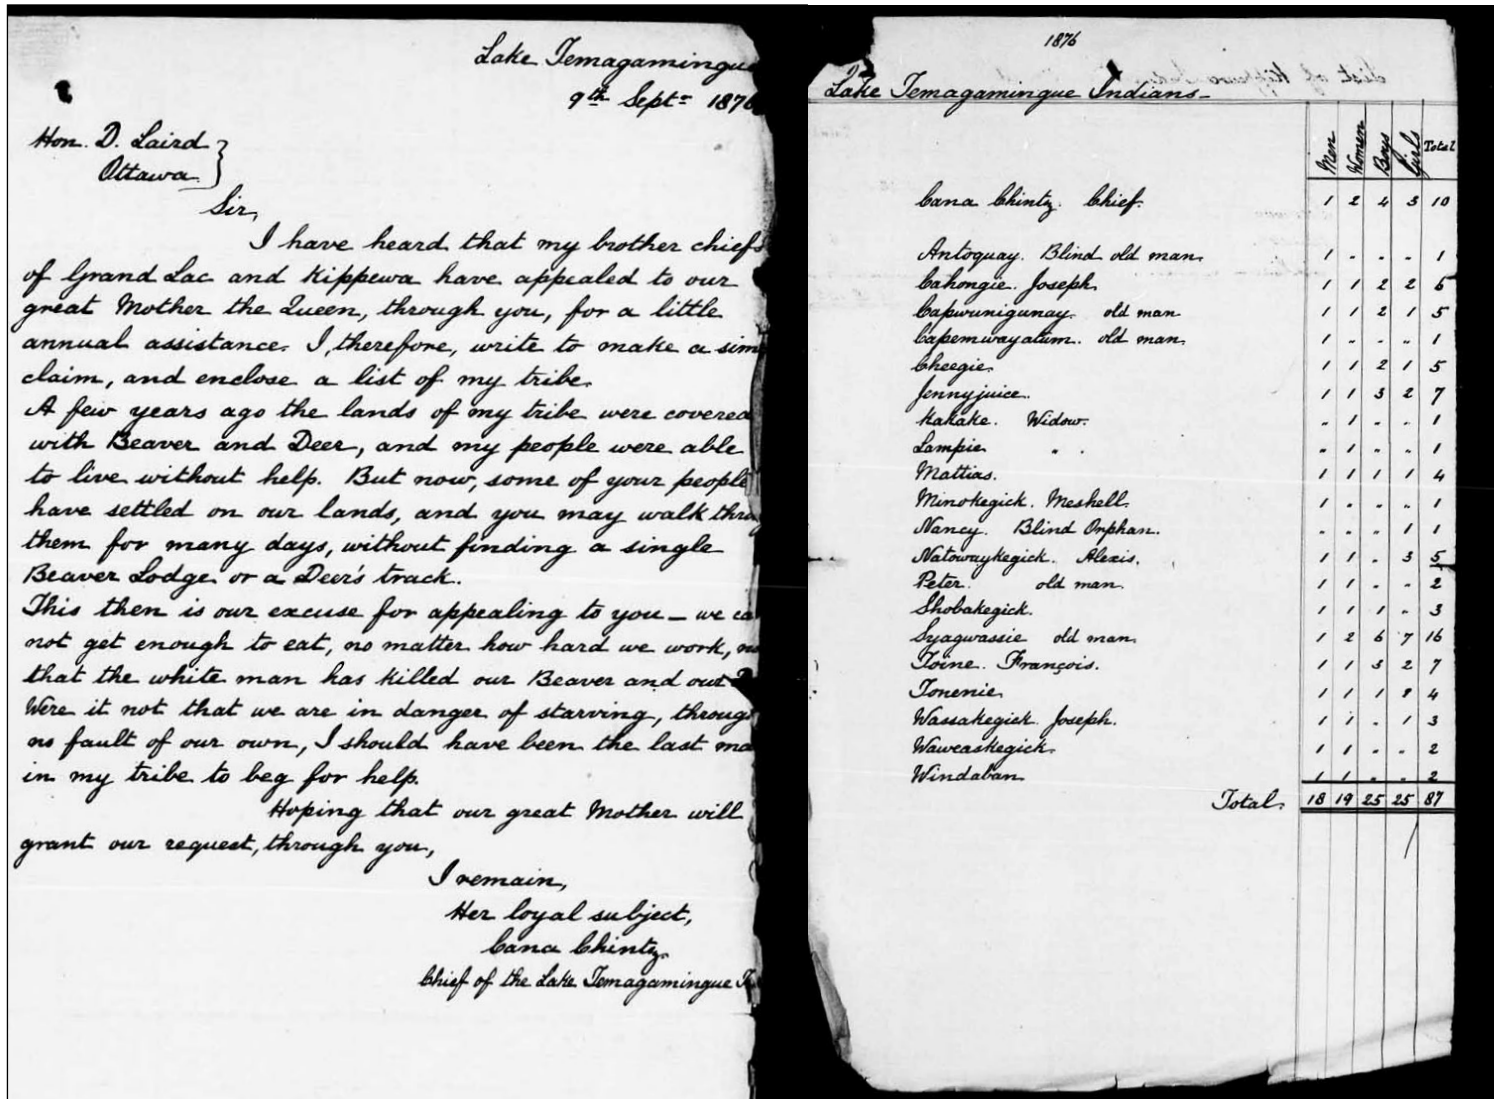 Lake Temagamingue
9th Septr 1876
Hon. D. Laird
Ottawa
Sir,
I have heard that my brother chiefs
of Grand Lac and Kippewa have appealed to our
great Mother the Queen, through you, for a little
annual assistance. I, therefore, write to make a sim
claim, and enclose a list of my tribe.
A few years ago the lands of my tribe were covered
with Beaver and Deer, and my people were able
to live without help. But now, some of your people
have settled on our lands, and you may walk thro
them for many days, without finding a single
Beaver Lodge or a Deer's track.
This then is our excuse for appealing to you — we ca
not get enough to eat, no matter how hard we work, n
that the white man has killed our Beaver and our D
Were it not that we are in danger of starving, through
no fault of our own, I should have been the last ma
in my tribe to beg for help.
Hoping that our great Mother will
grant our request, through you,
I remain,
Her loyal subject,
Cana Chintz.
Chief of the Lake Temagamingue
1876
Lake Temagamingue Indians
Men Women Boys Girls Total
Cana Chintz. Chief. 1 2 4 3 10
Antoquay. Blind old man. 1 . . . 1
Cahongie. Joseph. 1 1 2 2 6
Capwunigunay. old man 1 1 2 1 5
Capemwayatum. old man. 1 . . . 1
Cheegie. 1 1 2 1 5
Jennyjuice. 1 1 3 2 7
Kakake. Widow. . 1 . . 1
Lampie " . . 1 . . 1
Mattias. 1 1 1 1 4
Minokegick. Meshell. 1 . . . 1
Nancy. Blind Orphan. . . . 1 1
Natowaykegick. Alexis. 1 1 . 3 5
Peter. old man. 1 1 . . 2
Shobakegick. 1 1 1 . 3
Syagwassie old man. 1 2 6 7 16
Toine. François. 1 1 3 2 7
Tonenie. 1 1 1 1 4
Wassakegick. Joseph. 1 1 . 1 3
Waweaskegick. 1 1 . . 2
Windaban 1 1 . . 2
Total. 18 19 25 25 87